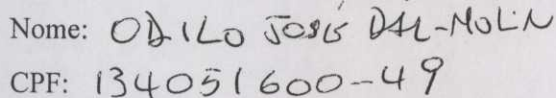 Nome: ODILO JOSÉ DAL-MOLIN
CPF: 134051600-49